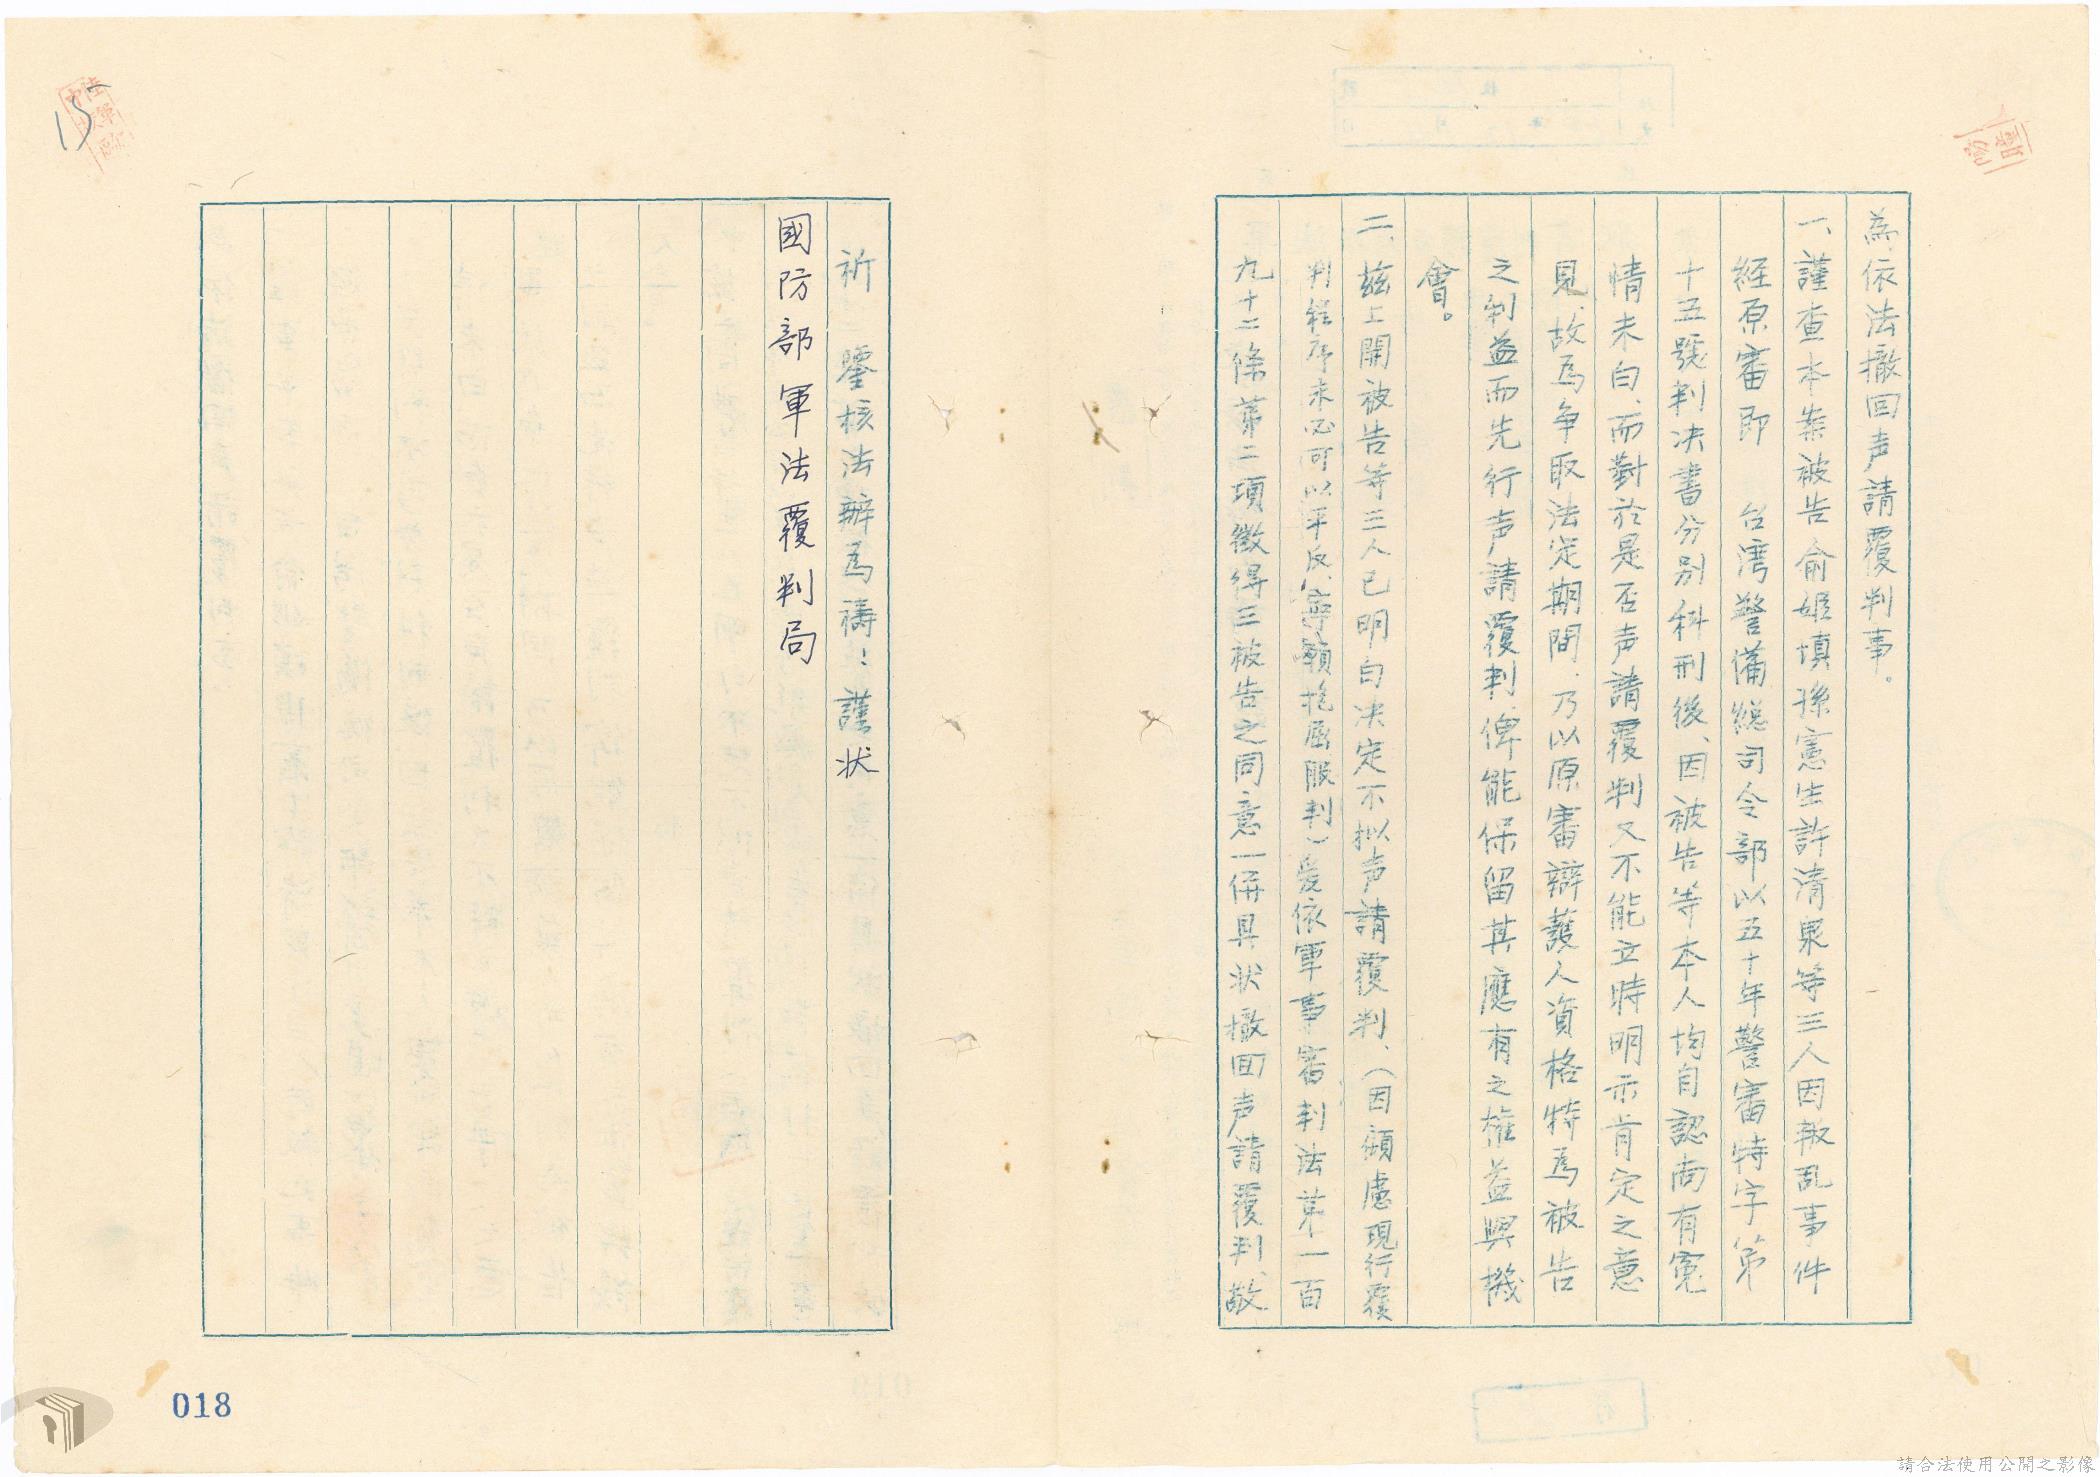 為依法撤回声請覆判事。
一、謹查本案被告俞姬慎孫憲生許清泉等三人因叛乱事件
経原審即　台湾警備総司令部以五十年警審特字第
十五號判决書分别科刑後、因被告等本人均自認尚有冤
情未白、而對於是否声請覆判又不能立時明示肯定之意
見、故為争取法定期間、乃以原審辯護人資格特為被告
之利益而先行声請覆判、俾能保留其應有之權益與機
會。
二、茲上開被告等三人已明白决定不拟声請覆判、（因顧慮現行覆
判程序未必可以平反、寧願抱屈服判）爰依軍事審判法第一百
九十二條第二項徵得三被告之同意一併具状撤回声請覆判、敬
祈　鑒核法辦為禱：謹状
國防部軍法覆判局
15
018
請合法使用公開之影像